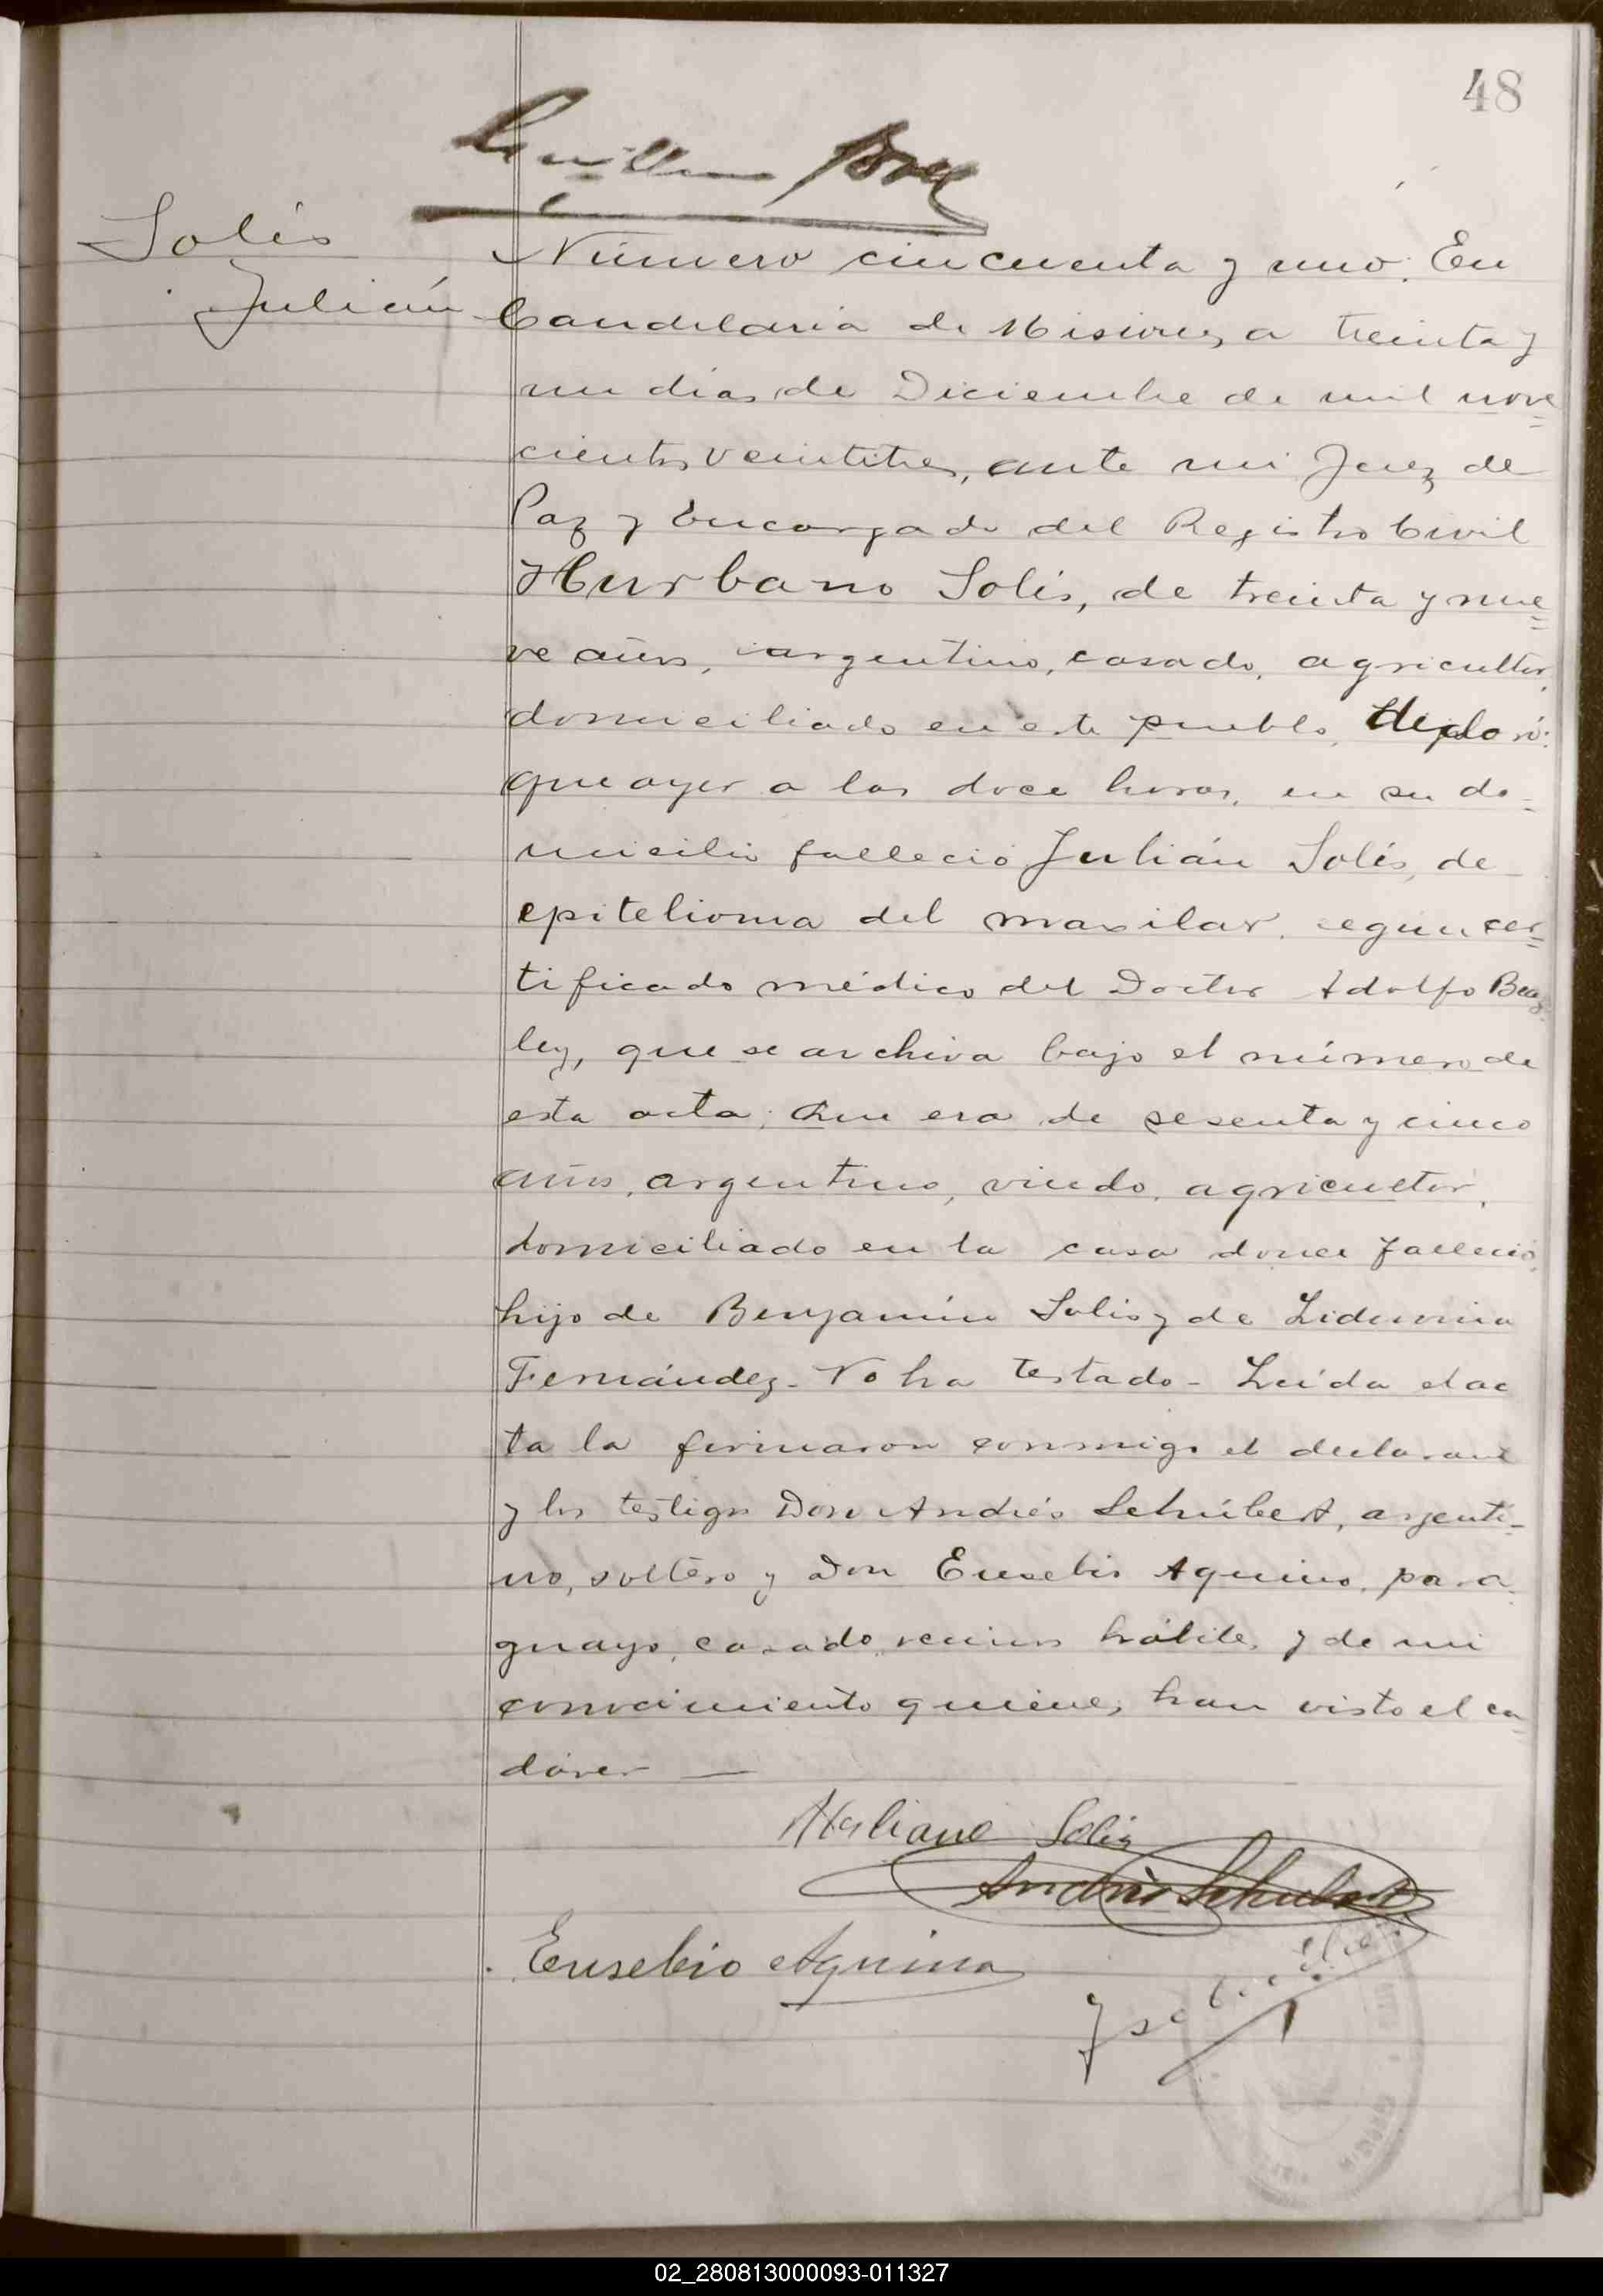 48
Solís
Julián
Número cincuenta y uno: En
Candelaria de Misiones, a treinta y
un días de Diciembre de mil nove=
cientos veintitres, ante mi Juez de
Paz y Encargado del Registro Civil
Hurbano Solís, de treinta y nue=
ve años, argentino, casado, agricultor,
domiciliado en este pueblo,
que ayer a las doce horas, en su do=
micilio falleció Julián Solís, de
epitelioma del maxilar, según cer=
tificado médico del Doctor Adolfo Beas
ley, que se archiva bajo el número de
esta acta; Que era de sesenta y cinco
años, argentino, viudo, agricultor,
domiciliado en la casa donde falleció,
hijo de Benjamín Solis y de Liduvina
Fernández - No ha testado - Leída el ac
ta la firmaron conmigo el declarante
y los testigos Don Andrés Schúbert, argenti-
no, soltero y Don Eusebio Aquino, para-
guayo, casado, vecinos hábiles y de mi
conocimiento quienes han visto el ca=
dáver —
Solis
Andrés Schubert
Eusebio Aquino
02_280813000093-011327